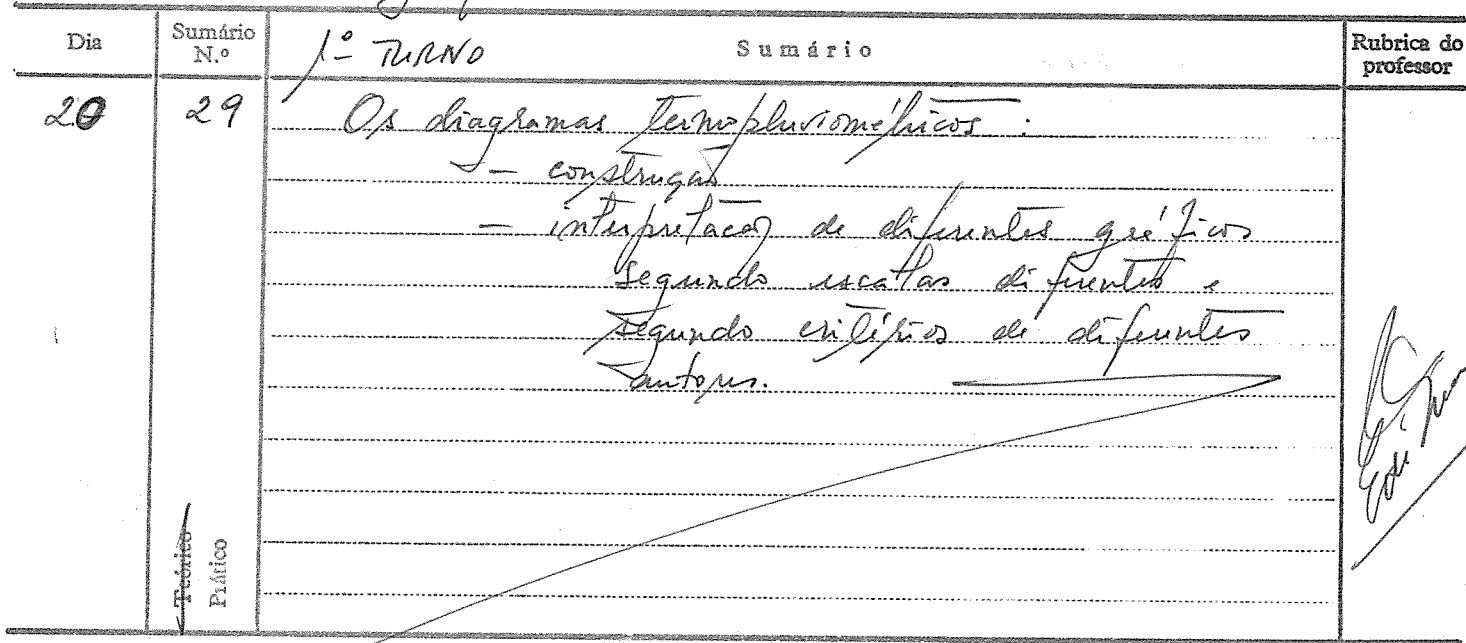 Dia
Sumário N.º
1º TURNO
Sumário
Rubrica do professor
20
29
Os diagramas termopluviométricos :
— construção
— interpretação de diferentes gráficos
segundo escalas diferentes e
segundo critérios de diferentes
autores.
Teórico
Prático